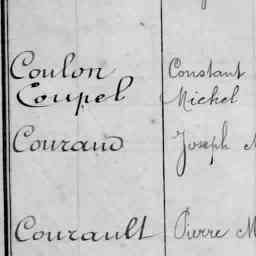 Coulon Constant
Coupel Michel
Couraud Joseph M
Courault Pierre M